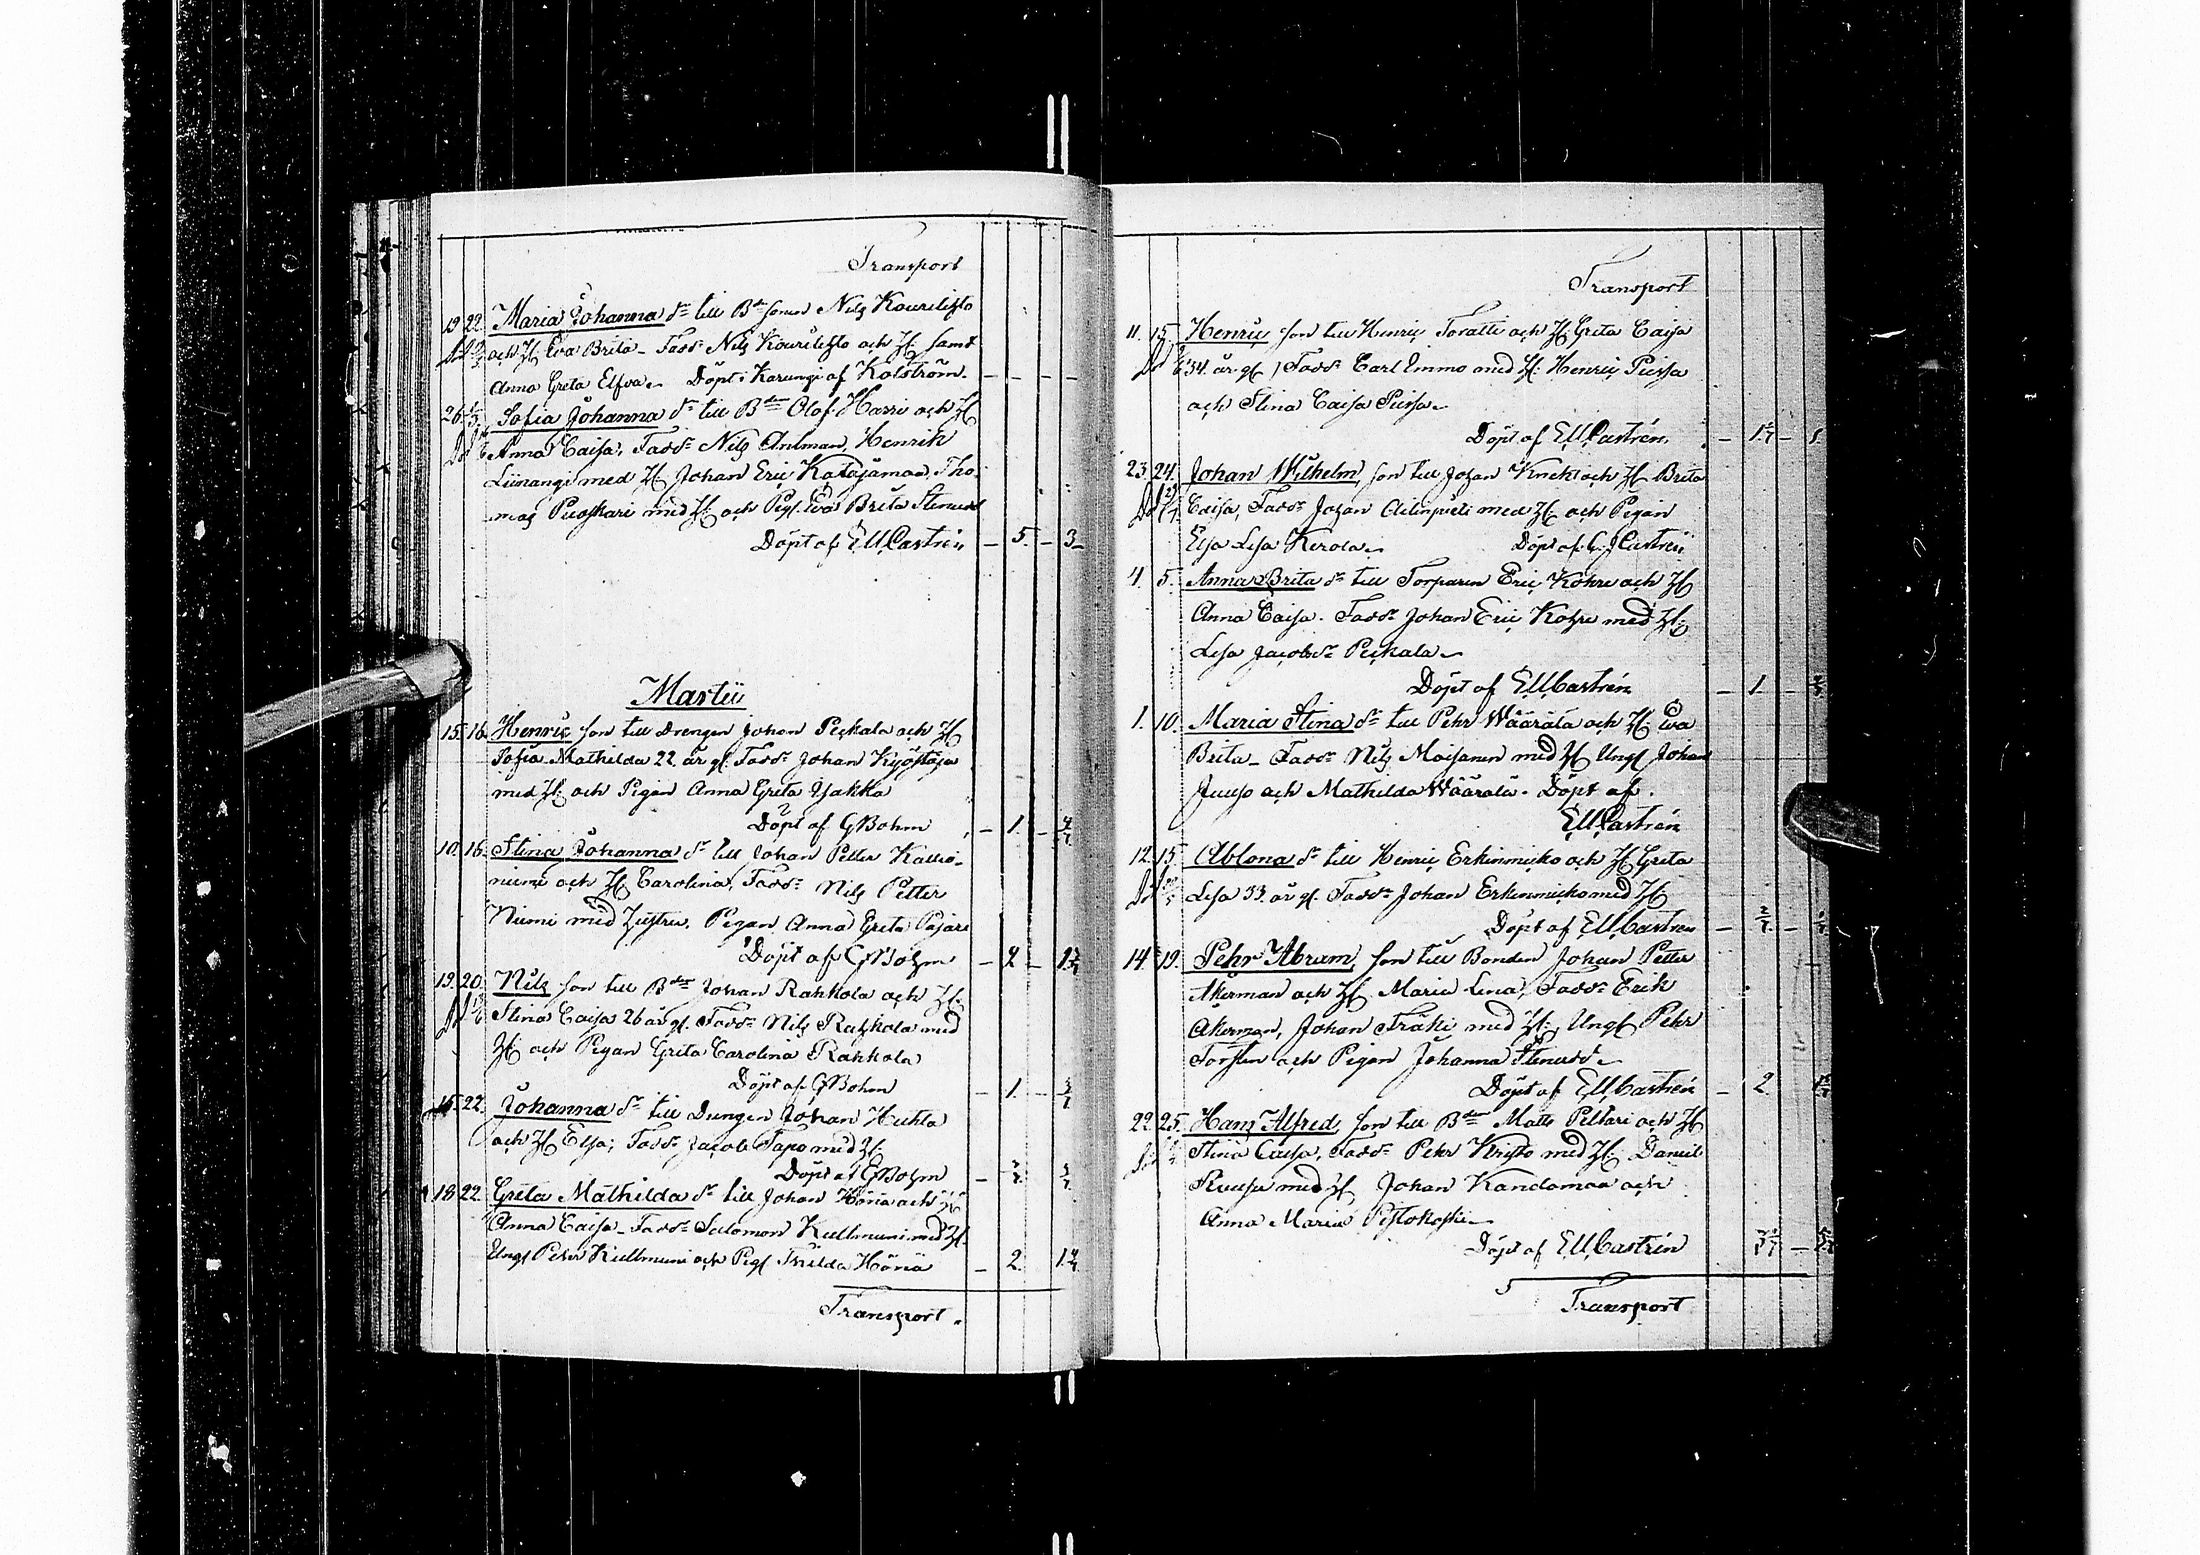 Transport
19 22 Maria Johanna dr till Bde sonen Nils Kourilehto
och H. Eva Brita - Fadd. Nils Kourilehto och H. samt
Anna Greta Elfva. Döpt i Karungi af Kolström.
26 Sofia Johanna dr till Bden Olof Harri och H
Anna Caisa, Fadd. Nils Anlman, Henrik
Liinangi med H Johan Eric Katajamaa, Tho-
mas Puoskari med H. och Pig. Eva Brita
Döpt af E U Castrén - 5. - 3
Martii
15. 16. Henric son till Drengen Johan Peckala och H
Sofia Mathilda 22 år gl. Fadd. Johan Kyöstäjä
med H. och Pigan Anna Greta Yjakka
Döpt af G Bohm - 1. -
10. 16. Stina Johanna dr till Johan Petter Kallio-
niemi och H Carolina, Fadd. Nils Petter
Niemi med Hustru, Pigan Anna Greta Pajari
Döpt af G Bohm - 2 -
19. 20. Nils son till Bden Johan Rahkola och H.
Stina Caisa 26 år gl. Fadd. Nils Rahkola med
H. och Pigan Greta Carolina Rahkola
Döpt af G Bohm - 1. -
15. 22. Johanna dr till Drengen Johan Huhta
och H Elsa; Fadd. Jacob Tapo med H.
Döpt af G Bohm
18 22. Greta Mathilda dr till Johan Höriä och H
Anna Caisa - Fadd. Salomon Kullmuni med H.
Ungl Pehr Kullmuni och Pigl Thilda Höriä - 2.
Transport.
Transport
11. 15. Henric son till Henric Toratti och H. Greta Caisa
34. år gl / Fadd. Carl Emmo med H. Henric Piirsa
och Stina Caisa
Döpt af E U Castrén.
23. 24. Johan Wilhelm, son till Johan Knekt och H Brita
Caisa, Fadd. Johan med H och Pigan
Elsa Lisa Kerola. Döpt af G. J Castrén
4. 5. Anna Brita dr till Torparen Eric Kohre och H
Anna Caisa. Fadd. Johan Eric Kohre med H.
Lisa Jacobsdr Peckala.
Döpt af E U Castrén - 1. -
1. 10. Maria Stina dr till Pehr Wäärälä och H. Eva
Brita - Fadd. Nils Moisanen med H Ungl Johan
Juuso och Mathilda Wäärälä. Döpt af.
E U Castrén
12. 15. Ablona dr till Henric Erkinmicko och H Greta
Lisa 33. år gl. Fadd. Johan Erkinmicko med H
Döpt af E U Castrén
14. 19. Pehr Abram, son till Bonden Johan Petter
Åkerman och H. Maria Lena, Fadd. Erik
Åkerman, Johan Fräki med H., Ungl Pehr
Torsten och Pigan Johanna
Döpt af E U Castrén - 2.
22. 25. Hans Alfred, son till Bden Matts Peltari och H
Stina Caisa, Fadd. Pehr Kristo med H. Daniel
med H Johan Kandamaa och
Anna Maria
Döpt af E U Castrén
Transport